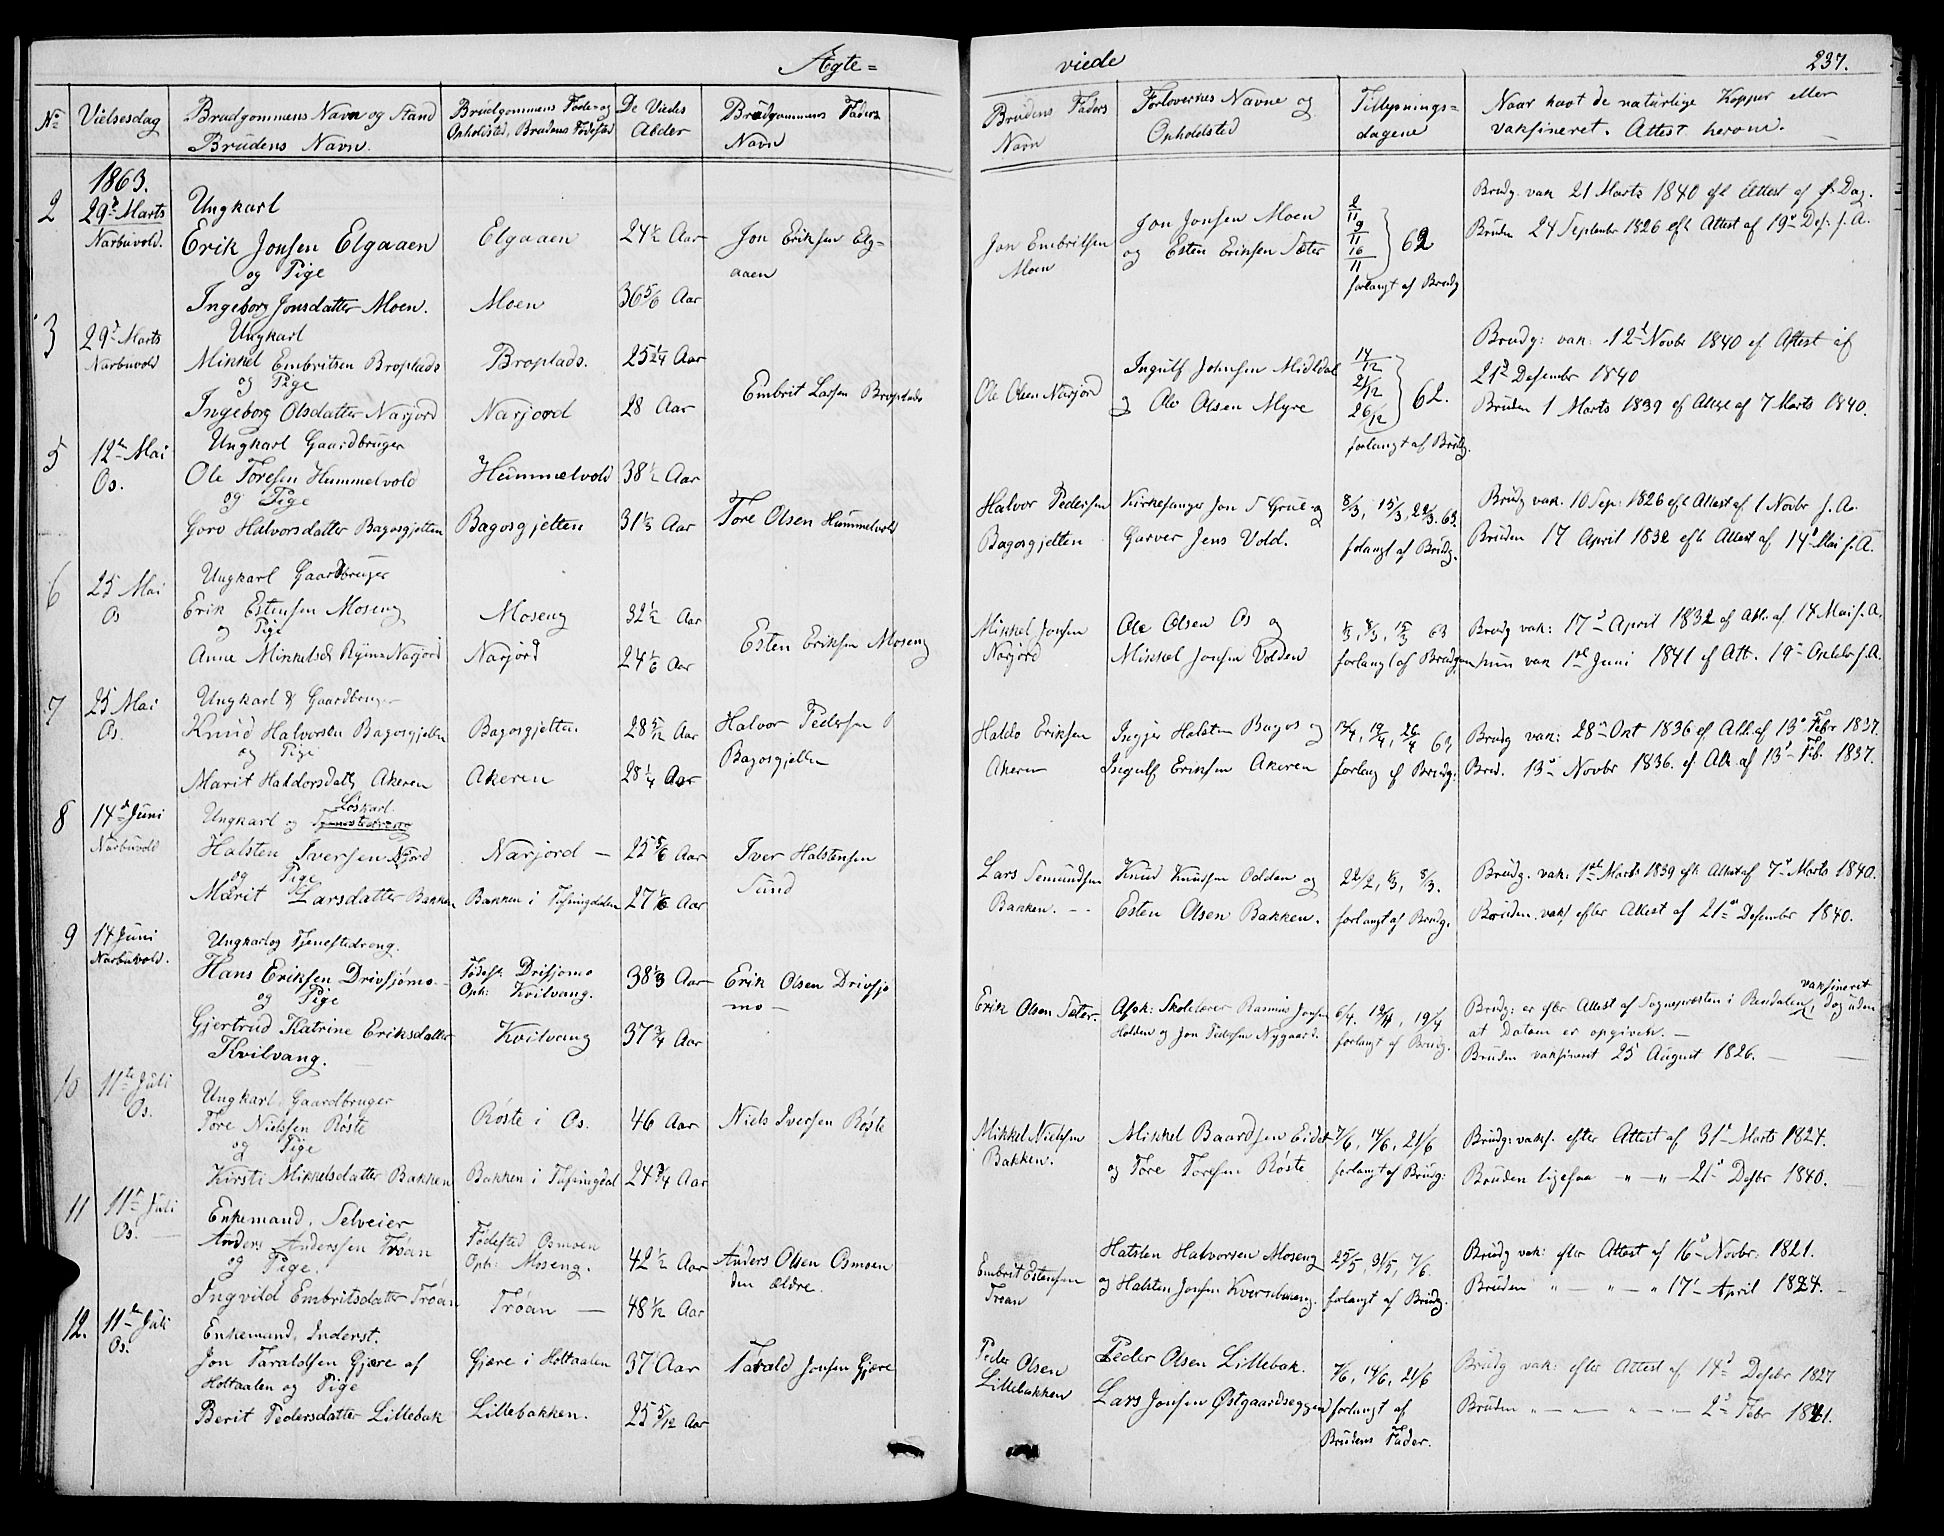 Ægte=
viede
237.
No Vielsesdag Brudgommens Navn og Stand
Brudens Navn.
Brudgommens Føde= og
Opholdsted, Brudens Fødested
De Viedes
Alder
Brudgommens Faders
Navn
Brudens Faders
Navn
Forlovernes Navne og
Opholdsted
Tillysnings=
dagene
Naar havt de naturlige Kopper eller
vaksineret. Attest herom.
1863.
2 29d Marts
Narbuvold.
Ungkarl
Erik Jonsen Elgaaen
og Pige
Ingeborg Jonsdatter Moen.
Elgaaen
Moen
24 1/2 Aar
36 5/6 Aar
Jon Eriksen Elg=
aaen
Jon Embritsen
Moen
Jon Jonsen Moen
og Esten Eriksen Sæter
2/11 9/11 16/11 62
forlangt af Brudg
Brudg. vak 21 Marts 1840 eft Attest af s. Dag.
Bruden 24 September 1826 eft Attest af 19d Des. s. A.
3 29d Marts
Narbuvold
Ungkarl
Mikkel Embritsen Broplads
og Pige
Ingeborg Olsdatter Narjord
Broplads.
Narjord
25 1/4 Aar
28 Aar
Embrit Larsen Broplads
Ole Olsen Narjord
Ingulf Johnsen Midtdal
og Ole Olsen Myre
14/12 21/12 26/12 62.
forlangt af Brudg.
Brudg: vak. 12d Novbr 1840 ef. Attest af
21d Desember 1840
Bruden 1 Marts 1839 ef Attest af 7 Marts 1840.
5 12te Mai
Os.
Ungkarl Gaardbruger
Ole Toresen Hummelvold
og Pige
Goro Halvorsdatter Bagosgjelten
Hummelvold
Bagosgjelten
38 1/2 Aar
31 1/3 Aar
Tore Olsen Hummelvold
Halvor Pedersen
Bagosgjelten
Kirkesanger Jon S Grue og
Garver Jens Vold.
8/3, 15/3, 22/3. 63.
folangt af Brudg.
Brudg vak. 10 Sep. 1826 eft Attest af 1 Novbr s. A.
Bruden 17 April 1832 eft Attest af 14d Mai s. A.
6 25 Mai
Os
Ungkarl Gaardbruger
Erik Estensen Moseng
og Pige
Anne Mikkelsd. Narjord
Moseng
Narjord
32 1/2 Aar
24 1/6 Aar
Esten Eriksen Moseng
Mikkel Jonsen
Narjord
Ole Olsen Os og
Mikkel Jonsen Volden
1/3, 8/3, 15/3 63
forlangt af Brudgom
Brudg vak: 17d April 1832 ef Att. af 14 Mai s. A.
hun vak 1ste Juni 1841 ef Att. 19d Oktbr s. A.
7 25 Mai
Os.
Ungkarl & Gaardbruger
Knud Halvorsen Bagosgjelten
og Pige
Marit Haldorsdatt. Akeren
Bagosgjelten
Akeren
28 5/12 Aar
28 1/4 Aar
Halvor Pedersen
Bagosgjelten
Haldo Eriksen
Akeren
Ingjer Halsten Bagos og
Ingulf Eriksen Akeren
12/4, 19/4, 26/4 63
forlang af Brudg.
Brudg vak: 28d Okt 1836 ef Att. af 13d Febr 1837.
Brud. 13d Novbr 1836. ef. Att. af 13d Feb. 1837.
8 14d Juni
Narbuvold
Ungkarl og Tjenestedreng Løskarl.
Halsten Iversen Njord
og Pige
Marit Larsdatter Bakken
Narjord —
Bakken i Tufsingdalen
25 5/6 Aar
27 1/6 Aar
Iver Halstensen
Sund
Lars Semundsen
Bakken. - -
Knud Knudsen Odden og
Esten Olsen Bakken.
22/2, 1/3, 8/3.
forlangt af Brudg.
Brudg. vak: 1ste Marts 1839 eft Attest af 7d Marts 1840.
Bruden. vaks efter Attest af 21de Desember 1840.
9 14 Juni
Narbuvold.
Ungkarl og Tjenestedreng.
Hans Eriksen Drivsjømo
og Pige
Gjertrud Katrine Eriksdatter
Kvilvang.
Fødest: Drifsjomo
Oph: Kvilvang.
Kvilvang
38 1/3 Aar
37 3/4 Aar
Erik Olsen Drivsjo
mo —
Erik Olsen Sæter.
Afsk: Skolelærer Rasmus Jonsen
Holden og Jon Pedersen Nygaard.
6/4. 12/4, 19/4
forlangt af Brudg.
Brudg: er efter Attest af Sognepræsten i Rendalen vaksineret, dog uden
at Datum er opgivet. —
Bruden vaksineret 25 August 1826. —
10 11te Juli
Os.
Ungkarl. Gaardbruger
Tore Nielsen Røste
og Pige
Kirsti Mikkelsdatter Bakken
Røste i Os.
Bakken i Tufsingdal
46 Aar
24 3/4 Aar
Niels Iversen Røste
Mikkel Nielsen
Bakken.
Mikkel Baardsen Eidet
og Tore Toresen Røste
7/6, 14/6, 21/6
forlangt af Brudg:
Brudg: vaks. efter Attest af 31d Marts 1827.
Bruden ligesaa — " — " — 21d Desbr 1840.
11 11te Juli
Os.
Enkemand. Selveier
Anders Anderssen Trøan
og Pige.
Ingvild Embritsdatter Trøan
Fødested Osmoen
Oph: Moseng.
Trøan —
42 1/2 Aar
48 1/12 Aar
Anders Olsen Osmoen
den ældre.
Embrit Estensen
Trøan
Halsten Halvorsen Moseng
og Halsten Jonsen Kvernbuneng.
25/5, 31/5, 7/6
forlangt af Brudg.
Brudg vak: efter Attest af 16d Novbr. 1821.
Bruden " — " — " 17d April 1824.
12. 11te Juli
Os.
Enkemand, Inderst.
Jon Taraldsen Gjære af
Holtaalen og Pige
Berit Pedersdatter Lillebak
Gjære i Holtaalen
Lillebakken.
37 Aar
25 5/12 Aar
Tarald Jonsen Gjære
Peder Olsen
Lillebakken
Peder Olsen Lillebak.
Lars Jonsen Østgaardseggen
7/6, 14/6, 21/6
forlangt af
Brudens Fader.
Brudg vak: efter Attest af 14d Desbr 1827
Bruden " — " — " — 2d Febr 1841.